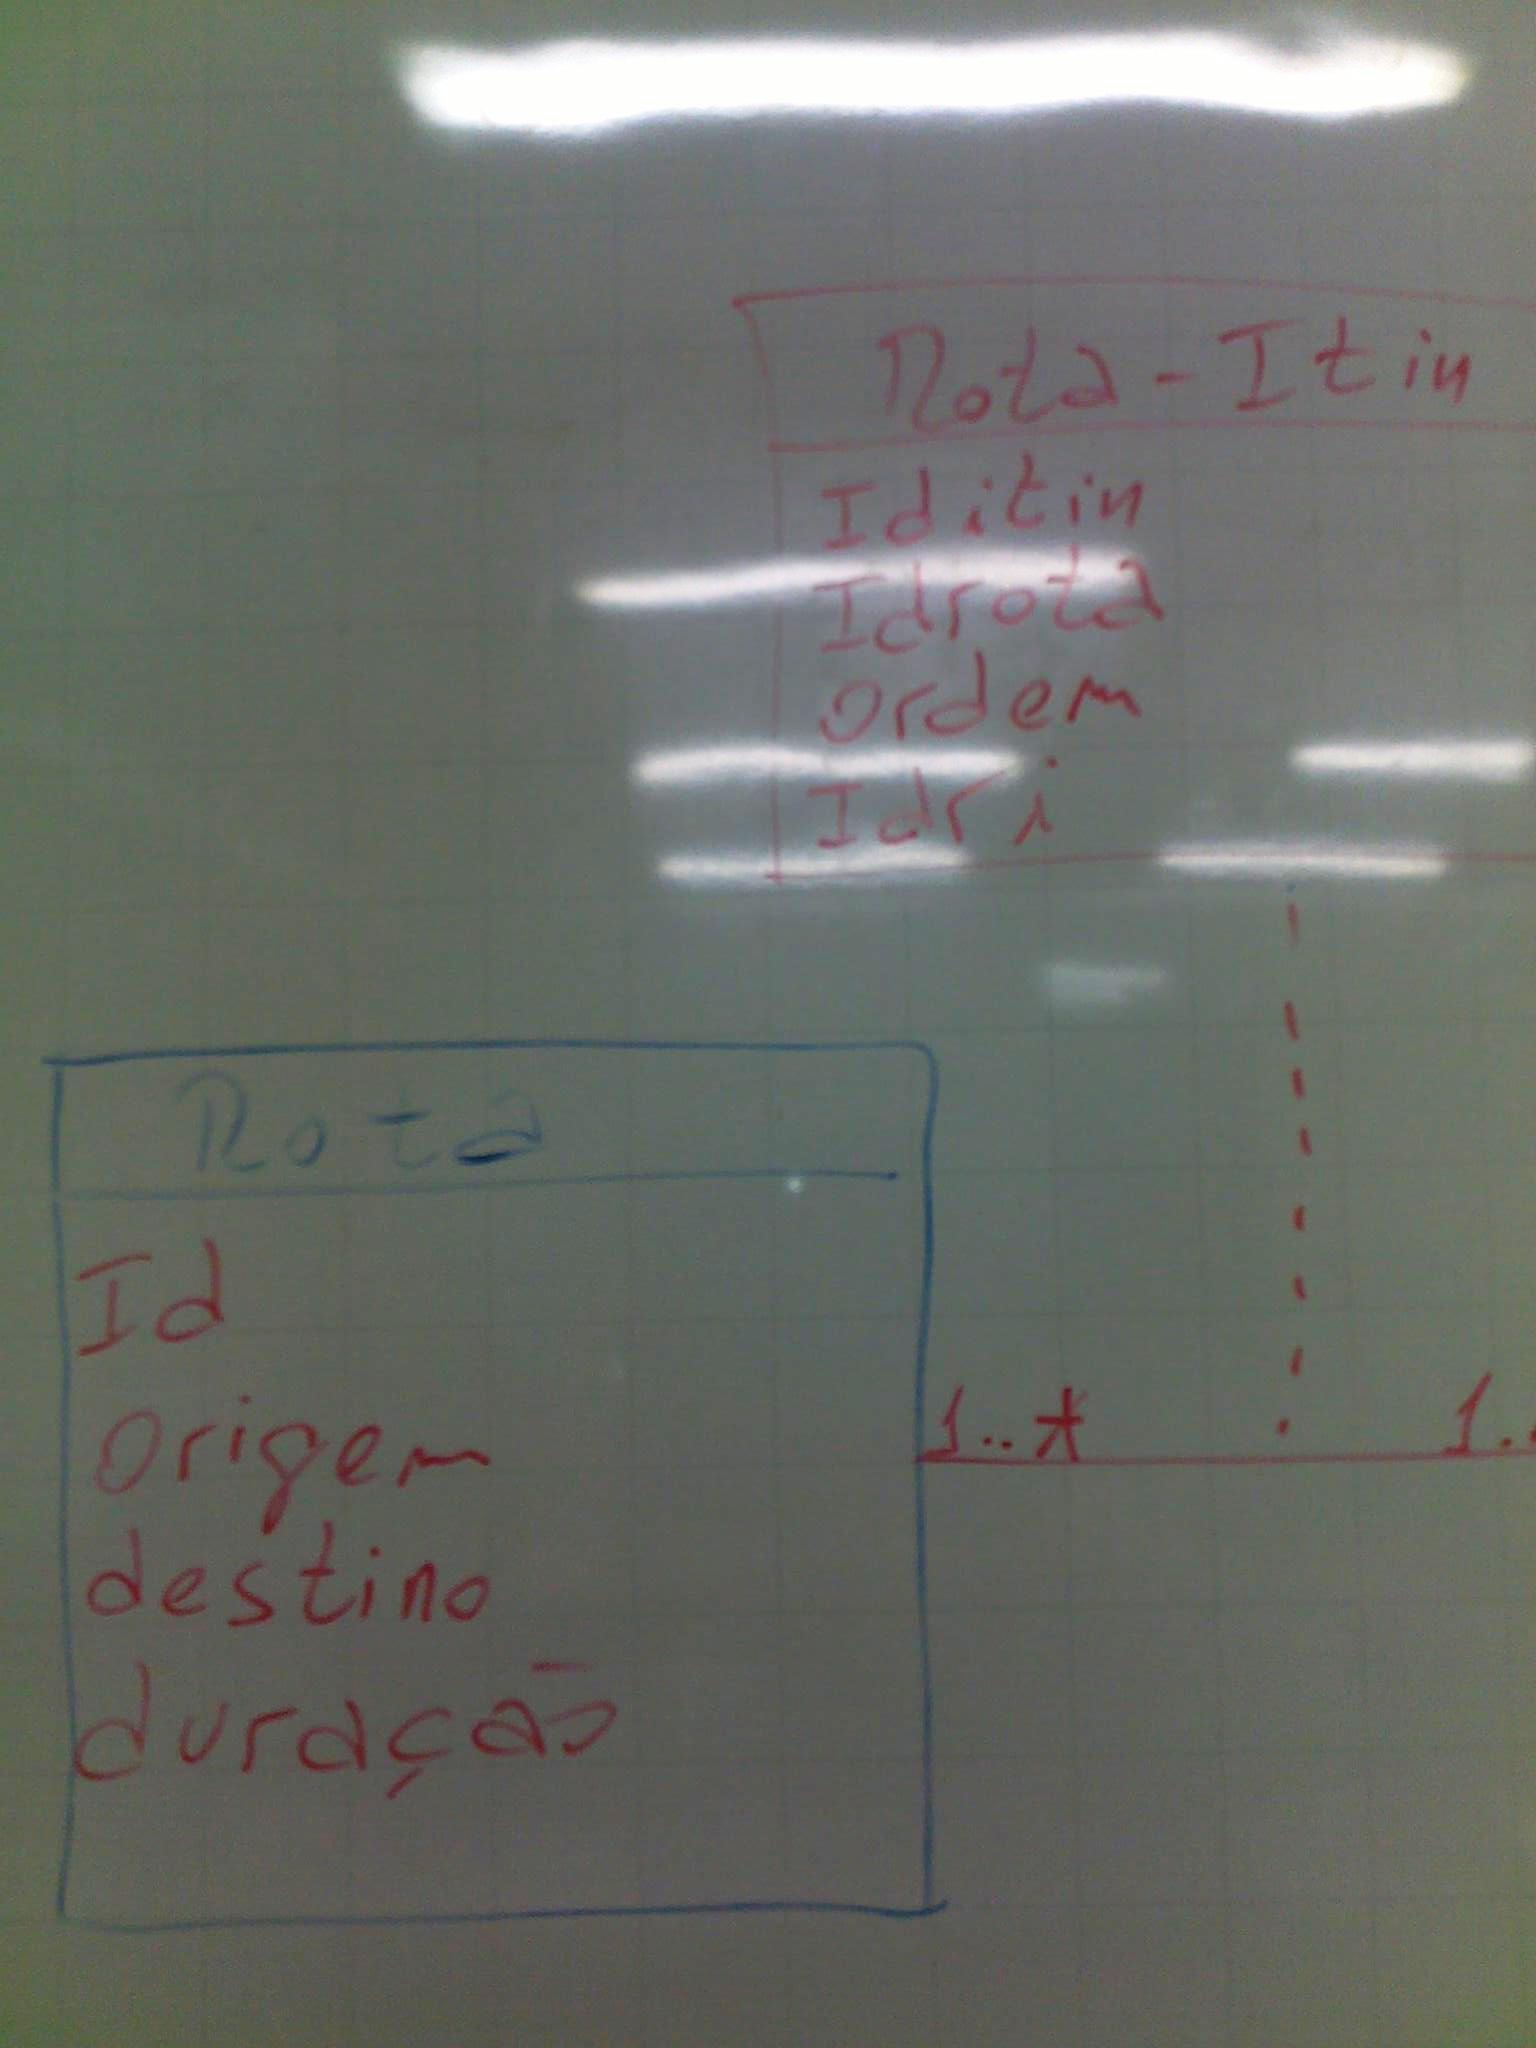 Rota-Itin
Iditin
Idrota
Ordem
Idri
Rota
Id
Origem
destino
duração
1..* 1..